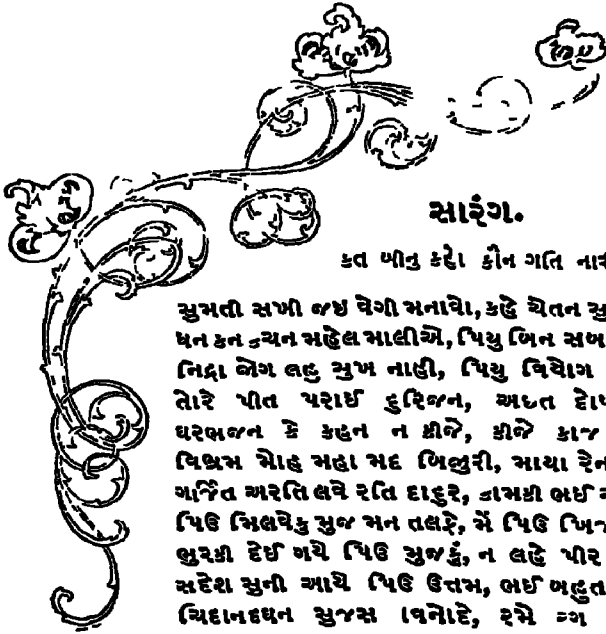 સારંગ.
કત બીનુ કહો કૌન ગતિ
સુમતી સખી જઇ વેગી મનાવો, કહે ચેતન
ધન કન કચન મહેલ માલીએ, પિયુ બિન સબ
નિદ્રા જોગ લહુ સુખ નાહી, પિયુ વિયોગ
તોરે પીત પરાઈ દુરિજન,
ઘરભજન કે કહન ન કીજે, કીજે કાજ
વિભ્રમ મોહ મહા મદ બિજુરી, માયા રેન
ગર્જિત અરતિ લવે રતિ દાદુર, કામકી ભઈ
પિઉ મિલવેકુ મુજ મન તલફે, મેં પિઉ
ભુરકી દેઈ ગયે પિઉ મુજકું, ન લહે પીર
સદેશ સુની આયે પિઉ ઉત્તમ, ભઈ બહુત
ચિદાનદઘન સુજસ વિનોદે, રમે